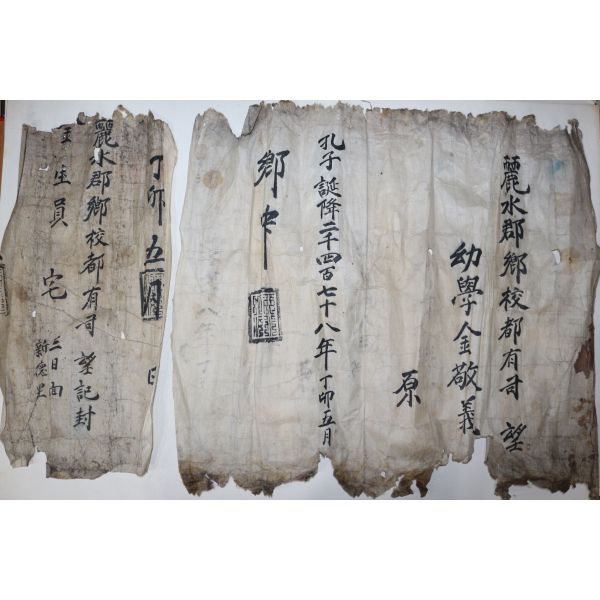 麗水郡鄉校都有司 望
幼學金敬義
原
孔子誕降二千四百七十八年丁卯五月
鄉中
丁卯五月 日
麗水郡鄉校都有司 望記封
生員 宅
三日面
新德里